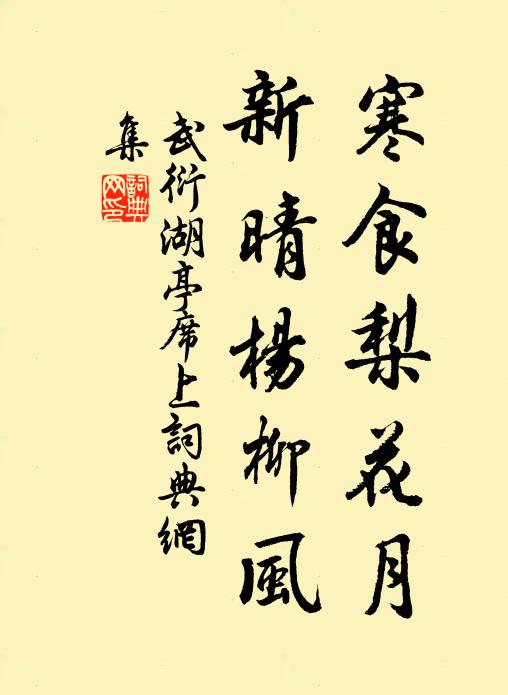 寒食梨花月
新晴楊柳風
武衍湖亭席上詞典網
集
詞典网印